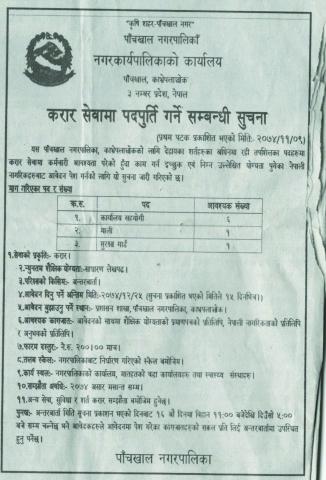 "कृषि शहर-पाँचखाल नगर"
पाँचखाल नगरपालिका
नगरकार्यपालिकाको कार्यालय
पाँचखाल, काभ्रेपलाञ्चोक
३ नम्बर प्रदेश, नेपाल
करार सेवामा पदपुर्ति गर्ने सम्बन्धी सुचना
(प्रथम पटक प्रकाशित भएको मिति: २०७४/११/०९)
यस पाँचखाल नगरपालिका, काभ्रेपलाञ्चोकको लागि देहायका शर्तहरुका अधिनमा रही तपशिलका पदहरुमा
करार सेवामा कर्मचारी आवश्यक परेको हुँदा काम गर्न इच्छुक एवं निम्न उल्लेखित योग्यता पुगेका नेपाली
नागरिकहरुबाट आवेदन पेश गर्नको लागि यो सुचना जारी गरिएको छ।
माग गरिएका पद र संख्या
क्र.स. पद आवश्यक संख्या
१. कार्यालय सहयोगी ६
२. माली १
३. सुरक्षा गार्ड १
१.सेवाको प्रकृति:- करार।
२.न्युनतम शैक्षिक योग्यता:-साधारण लेखपढ।
३.परिक्षाको किसिम:- अन्तरवार्ता।
४.आवेदन दिनु पर्ने अन्तिम मिति:-२०७४/१२/२५ (सुचना प्रकाशित भएको मितिले १५ दिनभित्र)।
५.आवेदन बुझाउनु पर्ने स्थान:- प्रशासन शाखा, पाँचखाल नगरपालिका, काभ्रेपलाञ्चोक।
६.आवश्यक कागजात:- आवेदनको साथमा शैक्षिक योग्यताको प्रमाणपत्रको प्रतिलिपि, नेपाली नागरिकताको प्रतिलिपि
र अनुभवको प्रतिलिपि।
७.फारम दस्तुर:- ने.रु. २००।०० मात्र।
८.तलब स्केल:- नगरपालिकाबाट निर्धारण गरिएको स्केल बमोजिम।
९.कार्य स्थल:- नगरपालिकाको कार्यालय, मातहतको वडा कार्यालयहरु तथा स्वास्थ्य संस्थाहरु।
१०.सम्झौता अवधि:- २०७५ असार मसान्त सम्म।
११.अन्य सेवा, सुविधा र शर्त करार सम्झौता बमोजिम हुनेछ।
पुनश्च: अन्तरवार्ता मिति सुचना प्रकाशन भएको दिनबाट १६ औं दिनमा बिहान ११:०० बजेदेखि दिउँसो ५:००
बजे सम्म चल्नेछ भने आवेदकहरुले आवेदनमा पेश गरेका कागजातहरुको सक्कल प्रति लिई अन्तरवार्तामा उपस्थित
हुनु पर्नेछ।
पाँचखाल नगरपालिका